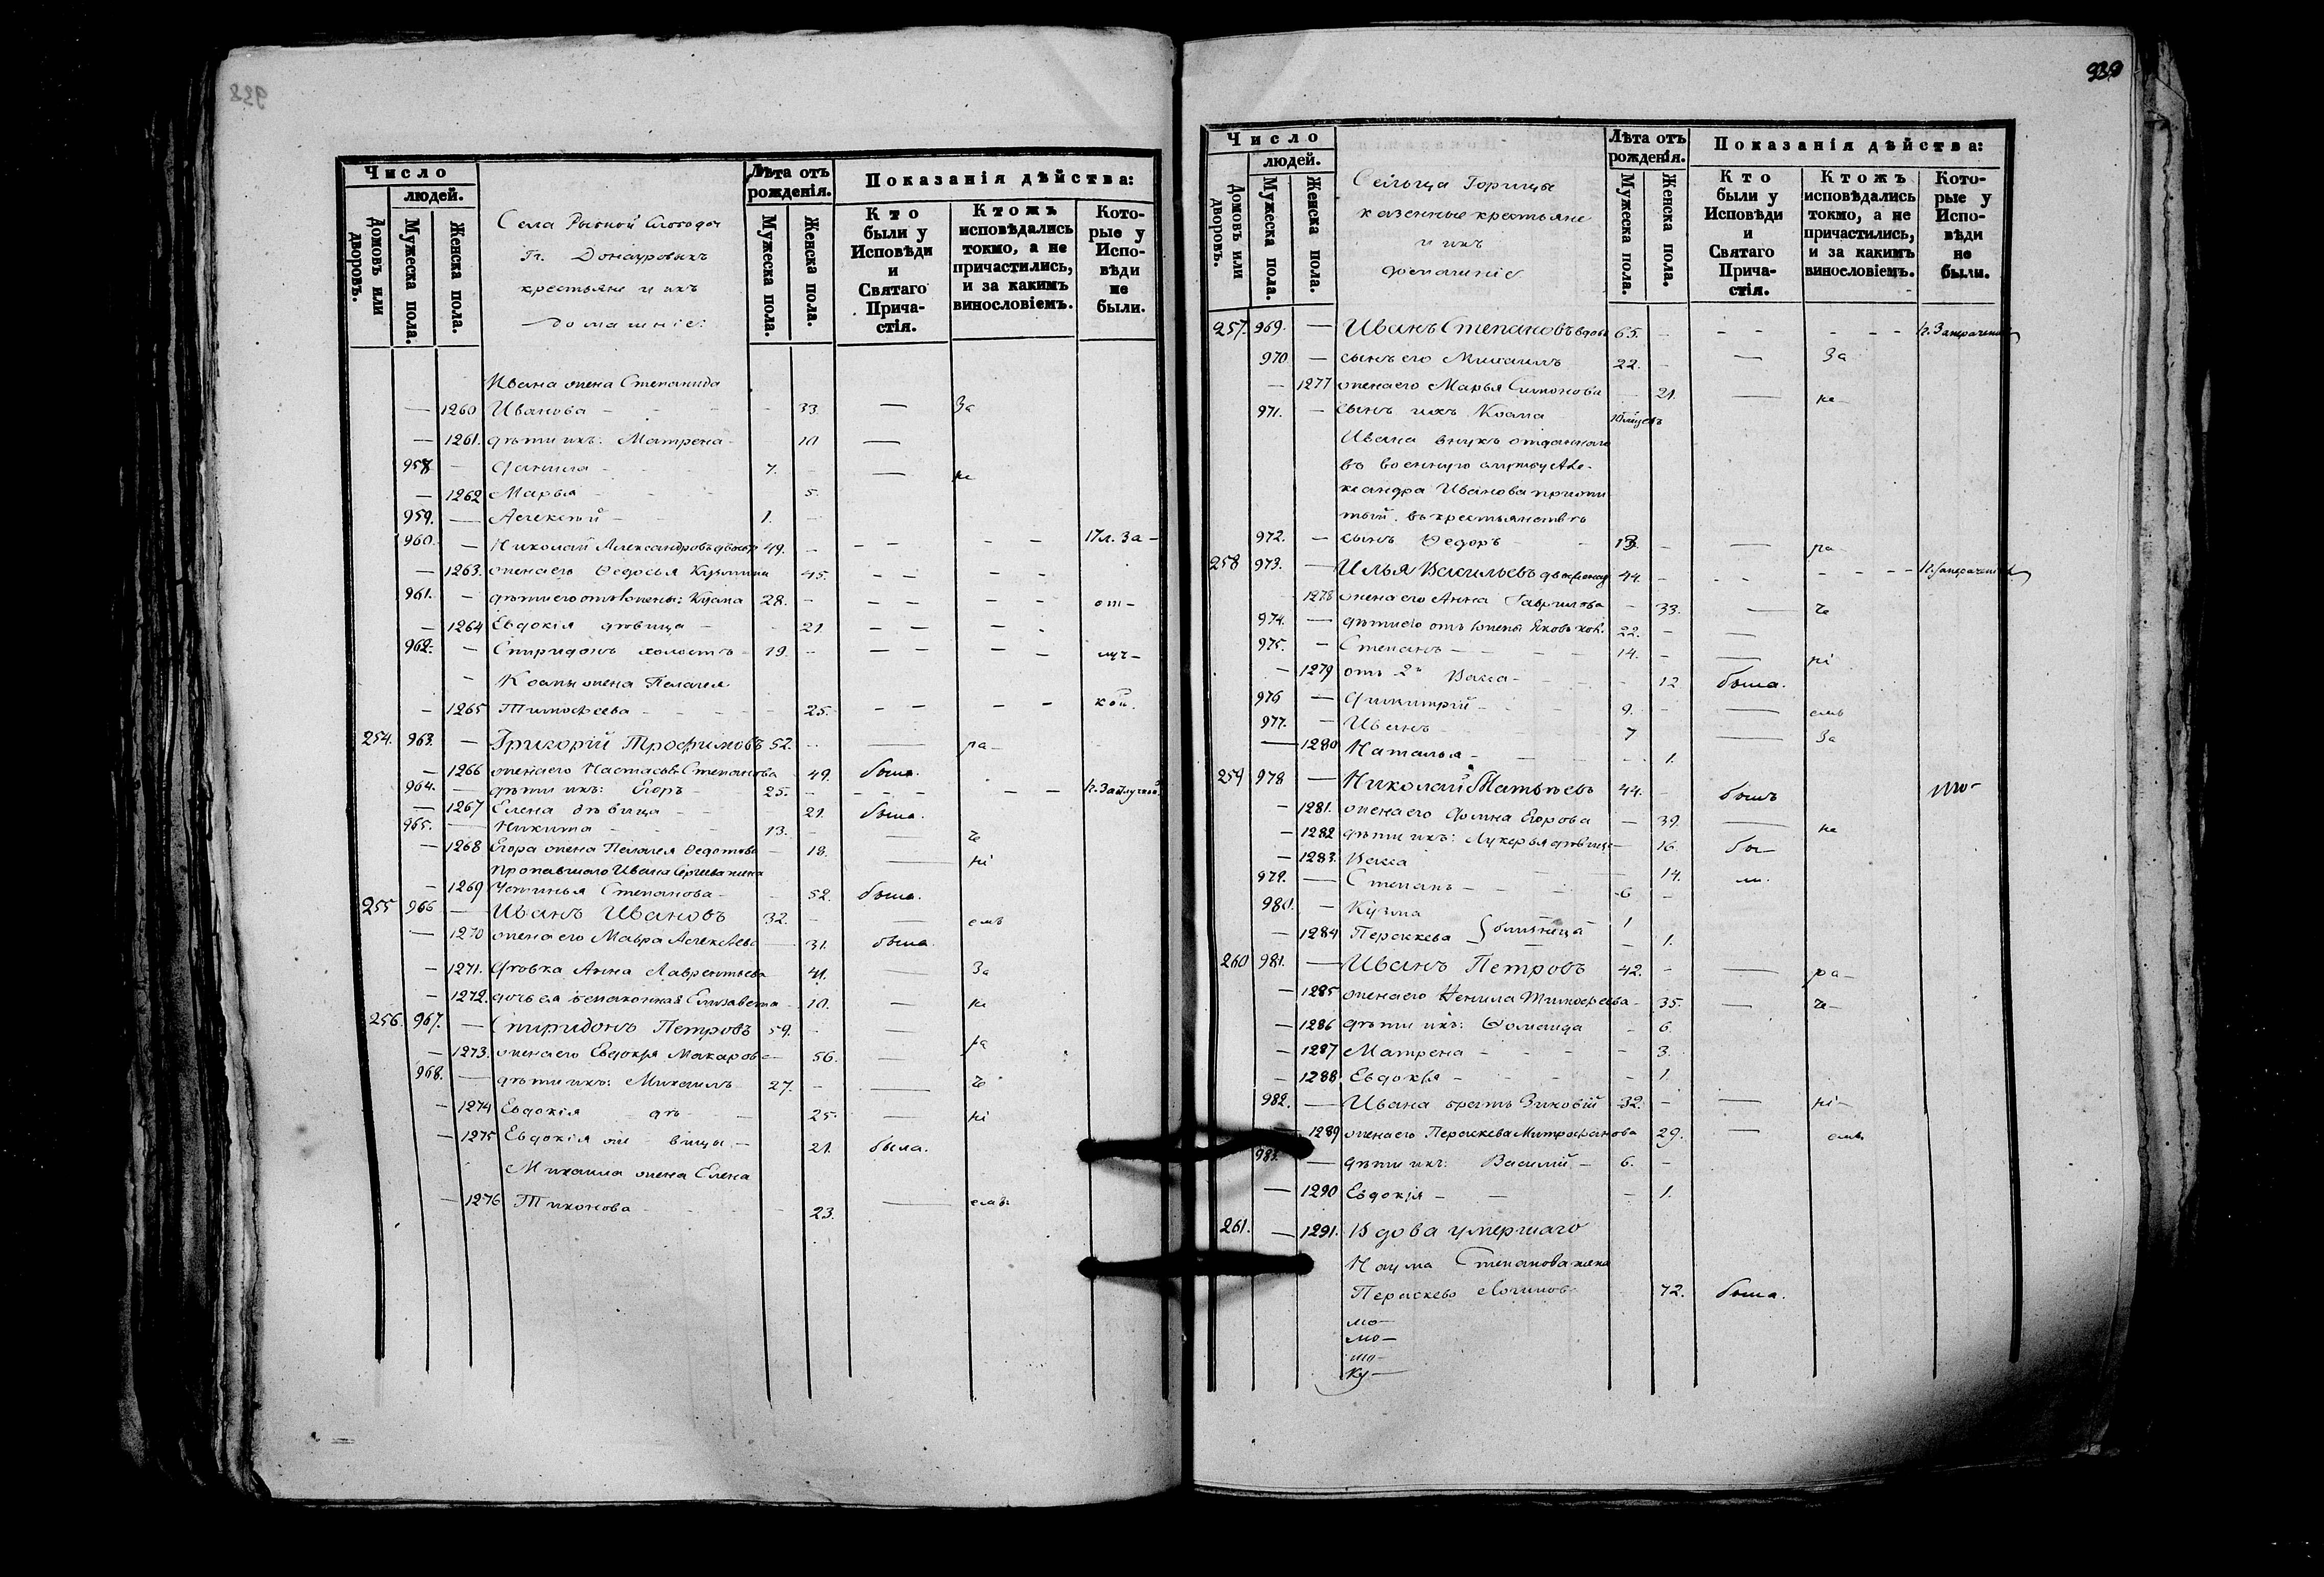 Число
людей.
Домовъ или дворовъ.
Мужеска пола.
Женска пола.
Села Рыбной Слободы
Гг. Донауровыхъ
крестьяне и ихъ
домашніе:
Лѣта отъ
рожденія.
Мужеска пола.
Женска пола.
Показанія дѣйства:
Кто
были у
Исповѣди
и
Святаго
Прича-
стія.
Ктожъ
исповѣдались
токмо, а не
причастились,
и за какимъ
винословіемъ.
Кото-
рые у
Испо-
вѣди
не
были.
Ивана жена Степанида
— 1260 Иванова - - - - 33. — За
— 1261. дѣти ихъ: Матрена - 10 —
958 — Данила - 7. - — не
— 1262 Марья - 5.
959. — Алексѣй - 1. -
960. — Николай Александровъ 49. - - - - - 17 л. За-
— 1263. жена его Ѳедосья Кузмина 45. - - - -
961. - дѣти его отъ жены: Кузма 28. - - - - - от-
— 1264 Евдокія дѣвица - 21 - - - -
962. - Спиридонъ холостъ - 19. - - - - - луч-
Козмы жена Пелагея
- 1265 Тимоѳеева - - - - 25. - - - - кой.
254. 963. — Григорій Трофимовъ 52. - — ра-
— 1266 жена его Настасья Степанова 49. была.
964. — дѣти ихъ: Егоръ - 25. - - - - - - п. Заблужкой
— 1267 Елена дѣвица - - 21. была.
965. — Никита - 13. - — че
— 1268 Егора жена Пелагея Ѳедотова - 18. — ні
пропавшаго Ивана Сергѣева жена
— 1269 Устинья Степанова - 52. была.
255 966 — Иванъ Ивановъ 32. - — емъ
— 1270 жена его Мавра Алексѣева — 31. была
— 1271. дѣвка Анна Лаврентьева 41. — За
— 1272. дочь ея незаконная Елизавета - 10. — не
256. 967. — Спиридонъ Петровъ 59. - —
— 1273. жена его Евдокія Макарова — 56. — ра
968. — дѣти ихъ: Михаилъ 27. - — че
- 1274 Евдокія дѣ - 25. — ні
- 1275 Евдокія же вицы - 21. была.
Михаила жена Елена
- 1276 Тихонова - - - 23. — емъ
930
Число
людей.
Домовъ или дворовъ.
Мужеска пола.
Женска пола.
Сельца Горицы
казенные крестьяне
и ихъ
домашніе
Лѣта отъ
рожденія.
Мужеска пола.
Женска пола.
Показанія дѣйства:
Кто
были у
Исповѣди
и
Святаго
Прича-
стія.
Ктожъ
исповѣдались
токмо, а не
причастились,
и за какимъ
винословіемъ.
Кото-
рые у
Испо-
вѣди
не
были.
257. 969. — Иванъ Степановъ вдовъ 65. - - - - - -
970 — сынъ его Михаилъ 22. - — За
— 1277 жена его Марья Симонова 21. — не-
971. - сынъ ихъ Козма
Ивана внукъ отданнаго
въ военную службу Але-
ксандра Иванова прижи
тый въ крестьянствѣ
972. - сынъ Ѳедоръ - 13. - — ра-
258 973. — Илья Васильевъ 44. - - - - - -
- 1278 жена его Анна Гаврилова - 33. — че
974. — дѣти его отъ 1 жены Яковъ хол. 22. - —
975. - Степанъ - - - 14. - — ні
- 1279 отъ 2й Васса - - - 12 была.
976 — Димитрій - - 9. - — емъ
977. - Иванъ - 7 — За
— 1280 Наталья - - 1.
259 978 — Николай Матвѣевъ 44. - былъ то-
- 1281. жена его Домна Егорова — 39. — не
- 1282 дѣти ихъ: Лукерья дѣвица — 16. бы-
- 1283. Васса — 14. ли.
979. — Степанъ - - - 6 -
980. - Кузма 1
близнеца
- 1284 Пераскева - 1.
260 981. — Иванъ Петровъ 42. - — ра-
- 1285 жена его Ненила Тимоѳеева - 35. — че-
- 1286 дѣти ихъ: Соломида - 6
- 1287 Матрена - - - - 3.
- 1288 Евдокія - - - 1.
982. — Ивана братъ Зиновій 32. - — ні-
1289 жена его Пераскева Митрофанова 29. — емъ
983. — дѣти ихъ: Василій - 6. -
— 1290 Евдокія - - - 1.
261. — 1291. Вдова умершаго
Наума Степанова жена
Пераскева Логинова 72. была.
мо-
мо-
мо-
Ку-